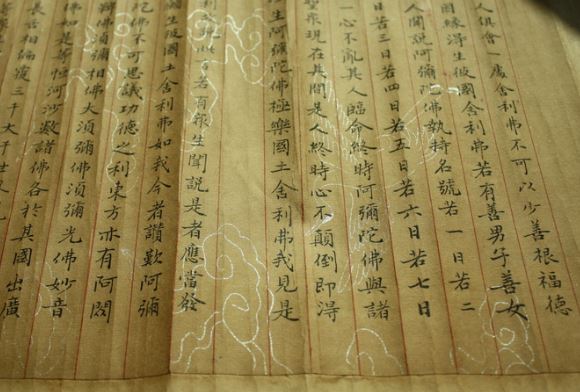 人俱會一處舍利弗不可以少善根福德
因緣得生彼國舍利弗若有善男子善女
人聞說阿彌陀佛執持名號若一日若二
日若三日若四日若五日若六日若七日
一心不亂其人臨命終時阿彌陀佛與諸
聖眾現在其前是人終時心不顛倒即得
生阿彌陀佛極樂國土舍利弗我見是
利故說此言若有眾生聞說是者應當發
生彼國土舍利弗如我今者讚歎阿彌
陀佛不可思議功德之利東方亦有阿閦
鞞佛須彌相佛大須彌佛須彌光佛妙音
佛如是等恒河沙數諸佛各於其國出廣
長舌相徧覆三千大千世